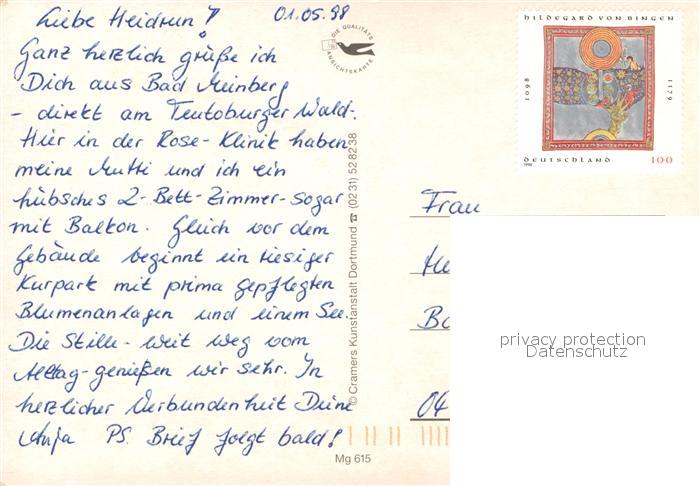 Liebe Heidrun! 01.05.98
Ganz herzlich grüße ich
Dich aus Bad Meinberg
- direkt am Teutoburger Wald.
Hier in der Rose-Klinik haben
meine Mutti und ich ein
hübsches 2-Bett-Zimmer-sogar
mit Balkon. Gleich vor dem
Gebäude beginnt ein riesiger
Kurpark mit prima gepflegten
Blumenanlagen und einem See.
Die Stille - weit weg vom
Alltag-genießen wir sehr. In
herzlicher Verbundenheit Deine
Anja PS. Brief folgt bald!
DIE QUALITÄTS
ANSICHTSKARTE
© Cramers Kunstanstalt Dortmund ☎ (0231) 528238
Mg 615
HILDEGARD VON BINGEN
1098
1179
DEUTSCHLAND 100
1998
Frau
04
privacy protection
Datenschutz